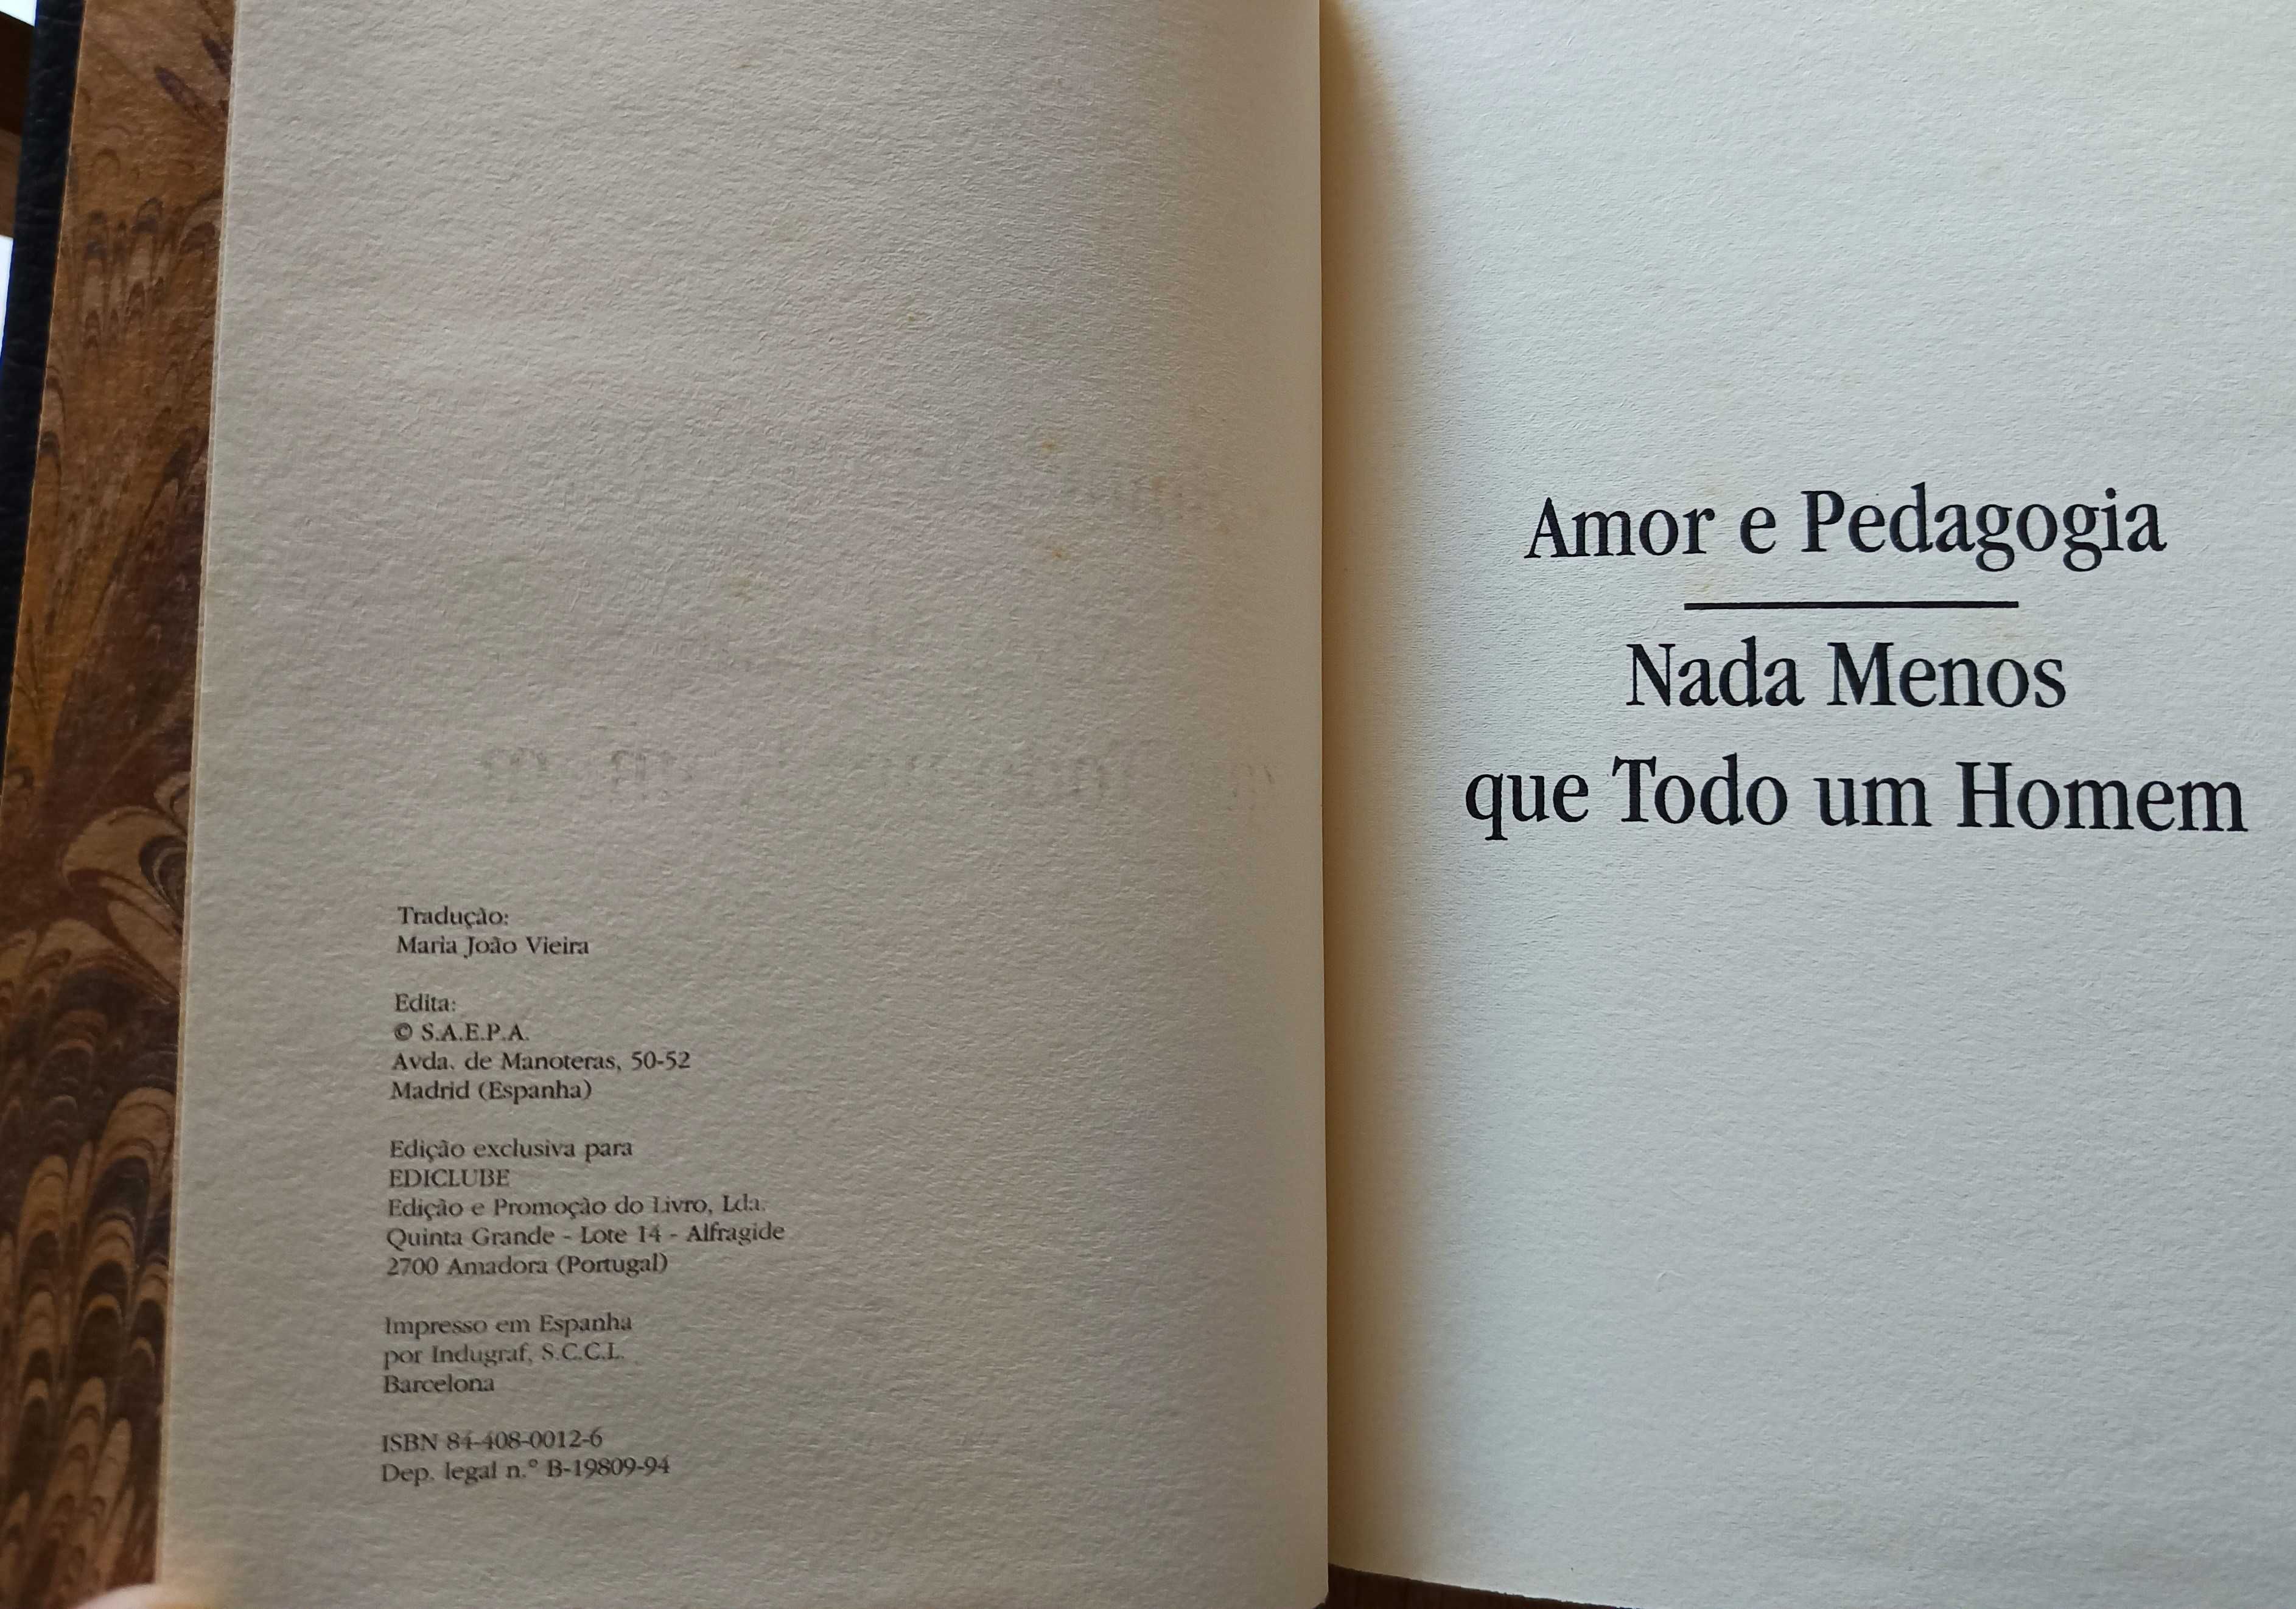 Tradução:
Maria João Vieira
Edita:
© S.A.E.P.A.
Avda. de Manoteras, 50-52
Madrid (Espanha)
Edição exclusiva para
EDICLUBE
Edição e Promoção do Livro, Lda.
Quinta Grande - Lote 14 - Alfragide
2700 Amadora (Portugal)
Impresso em Espanha
por Indugraf, S.C.C.L.
Barcelona
ISBN 84-408-0012-6
Dep. legal n.º B-19809-94
Amor e Pedagogia
Nada Menos
que Todo um Homem